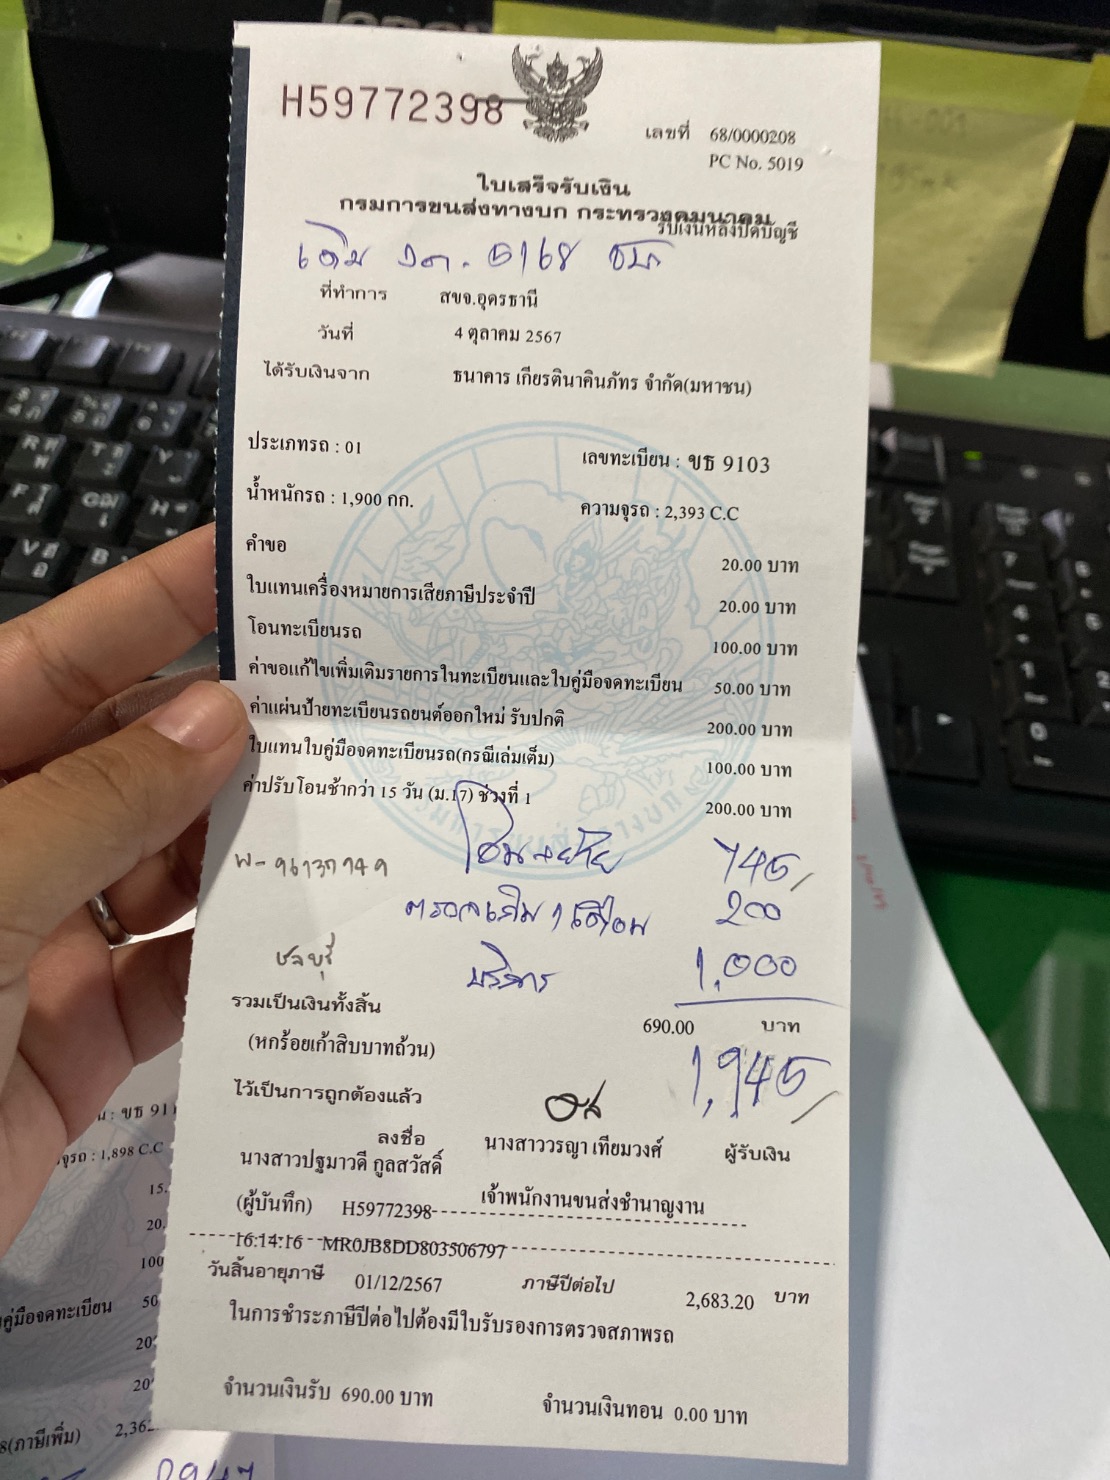 H59772398
เลขที่ 68/0000208
PC No. 5019
ใบเสร็จรับเงิน
กรมการขนส่งทางบก กระทรวงคมนาคม
รับเงินหลังปิดบัญชี
เดิม 5168
ที่ทำการ สขจ.อุดรธานี
วันที่ 4 ตุลาคม 2567
ได้รับเงินจาก ธนาคาร เกียรตินาคินภัทร จำกัด(มหาชน)
ประเภทรถ : 01 เลขทะเบียน : ขธ 9103
น้ำหนักรถ : 1,900 กก. ความจุรถ : 2,393 C.C
คำขอ 20.00 บาท
ใบแทนเครื่องหมายการเสียภาษีประจำปี 20.00 บาท
โอนทะเบียนรถ 100.00 บาท
ค่าขอแก้ไขเพิ่มเติมรายการในทะเบียนและใบคู่มือจดทะเบียน 50.00 บาท
ค่าแผ่นป้ายทะเบียนรถยนต์ออกใหม่ รับปกติ 200.00 บาท
ใบแทนใบคู่มือจดทะเบียนรถ(กรณีเล่มเต็ม) 100.00 บาท
ค่าปรับโอนช้ากว่า 15 วัน (ม.17) ช่วงที่ 1 200.00 บาท
โอน+ย้าย 745
200
ชลบุรี บริการ 1,000
รวมเป็นเงินทั้งสิ้น 690.00 บาท
(หกร้อยเก้าสิบบาทถ้วน) 1,945
ไว้เป็นการถูกต้องแล้ว
ลงชื่อ นางสาววรญา เทียมวงศ์ ผู้รับเงิน
นางสาวปฐมาวดี กูลสวัสดิ์ เจ้าพนักงานขนส่งชำนาญงาน
(ผู้บันทึก) H59772398
16:14:16 MR0JB8DD803506797
วันสิ้นอายุภาษี 01/12/2567 ภาษีปีต่อไป 2,683.20 บาท
ในการชำระภาษีปีต่อไปต้องมีใบรับรองการตรวจสภาพรถ
จำนวนเงินรับ 690.00 บาท จำนวนเงินทอน 0.00 บาท
: ขธ 91
: 1,898 C.C
15.
20.
100
คู่มือจดทะเบียน 50
20
20
8(ภาษีเพิ่ม) 2,362